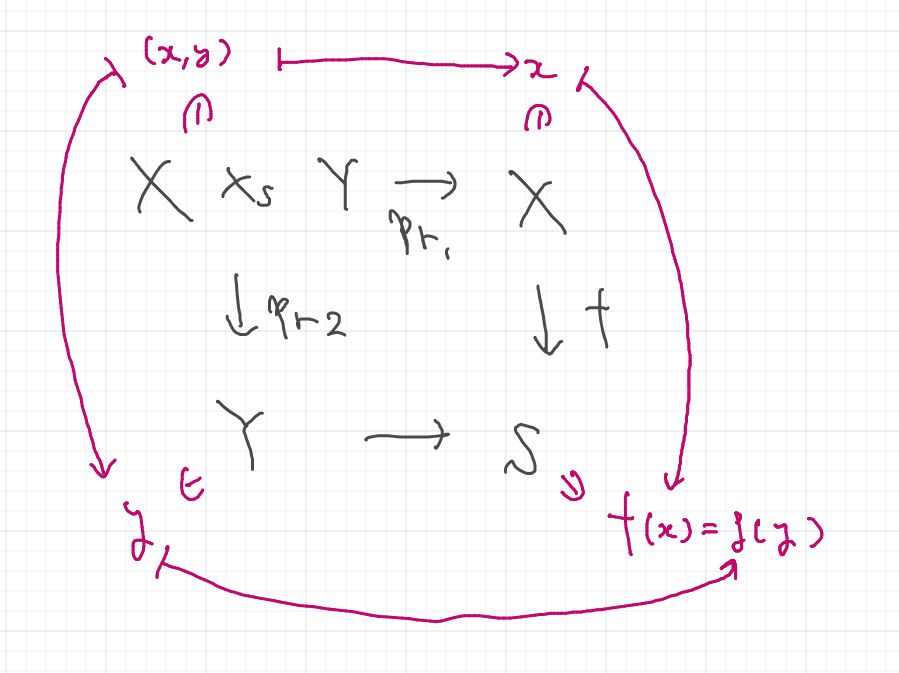 (x,y) ↦ x
X ×s Y → X
pr1
↓ pr2 ↓ f
Y → S
y f(x)=g(y)